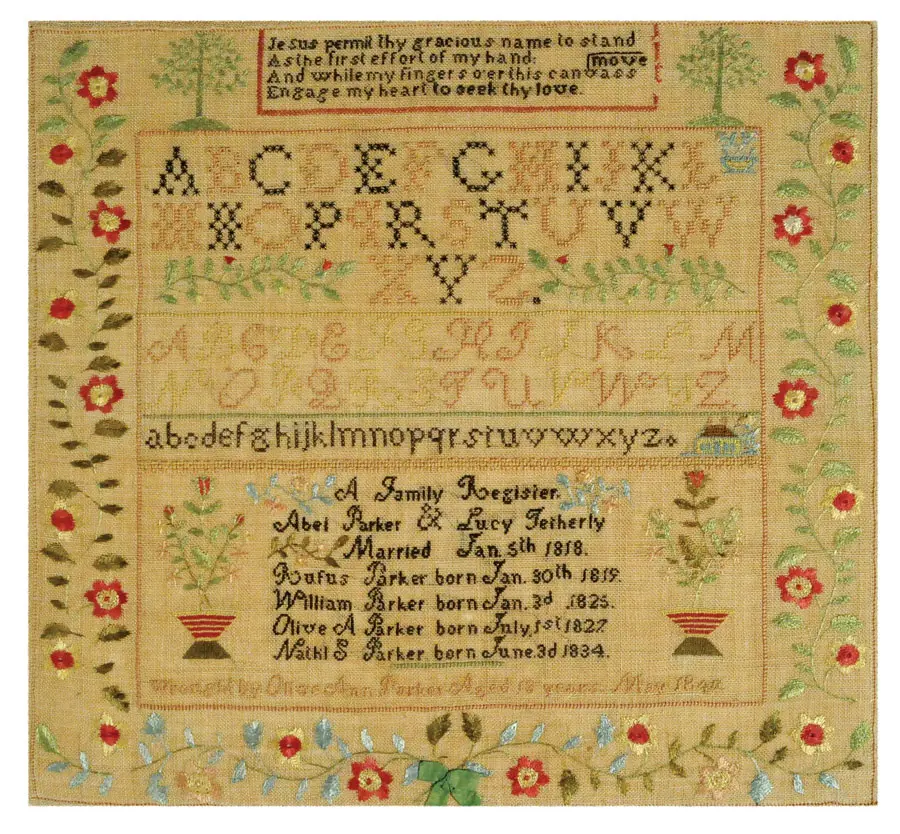 Jesus permit thy gracious name to stand
As the first effort of my hand:
move
And while my fingers o'er this canvass
Engage my heart to seek thy love.
A B C D E F G H I J K L
M N O P Q R S T U V W
X Y Z.
A B C D E F G H I J K L M
N O P Q R S T U V W Y Z
abcdefghijklmnopqrstuvwxyz.
A Family Register.
Abel Parker & Lucy Tetherly
Married Jan. 5th 1818.
Rufus Parker born Jan. 30th 1819.
William Parker born Jan. 3d 1825.
Olive A Parker born July, 1st 1827
Nathl S Parker born June. 3d 1834.
Wrought by Olive Ann Parker Aged years. May 1840